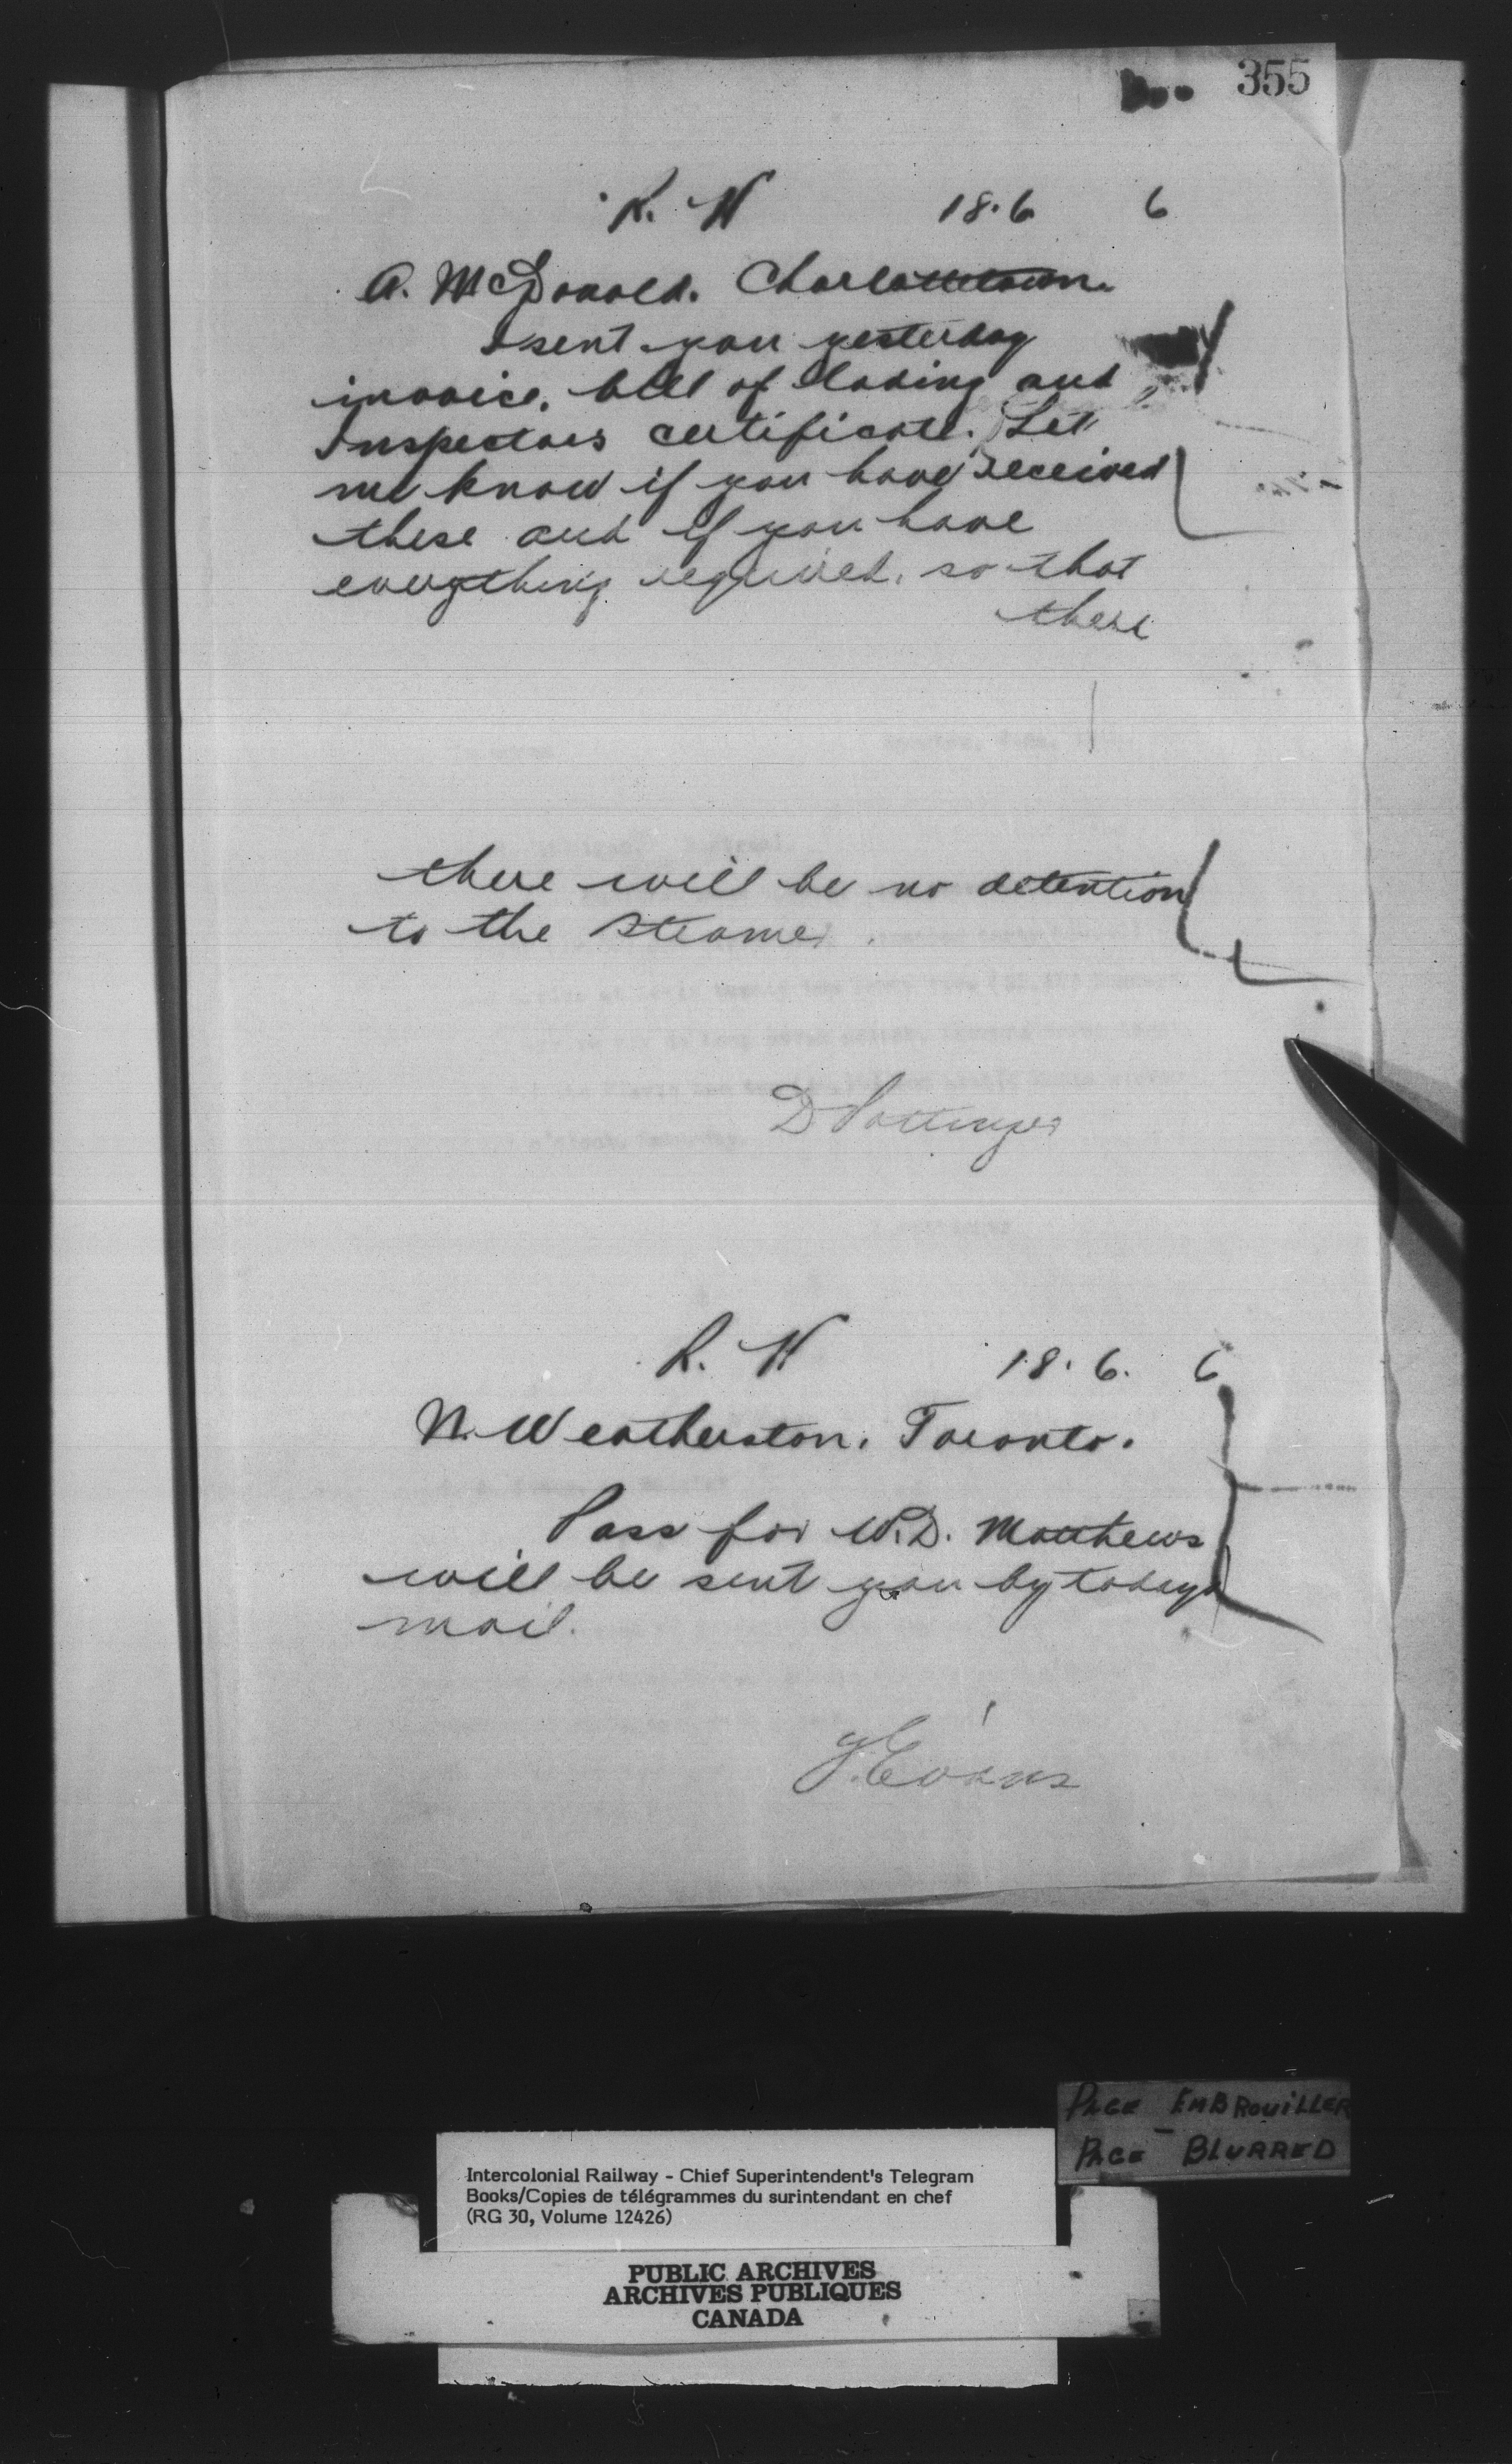 355
R. W 18.6 6
A. McDonald. Charlottetown.
I sent you yesterday
invoice, bill of lading and
Inspectors certificate. Let
me know if you have received
these and if you have
everything required, so that
there
there will be no detention
to the steamer.
D Pottinger
R. W 18.6. 6
N. Weatherston. Toronto.
Pass for W.D. Matthews
will be sent you by todays
mail.
J. Evans
PAGE EMBROUILLER
PAGE BLURRED
Intercolonial Railway - Chief Superintendent's Telegram
Books/Copies de télégrammes du surintendant en chef
(RG 30, Volume 12426)
PUBLIC ARCHIVES
ARCHIVES PUBLIQUES
CANADA